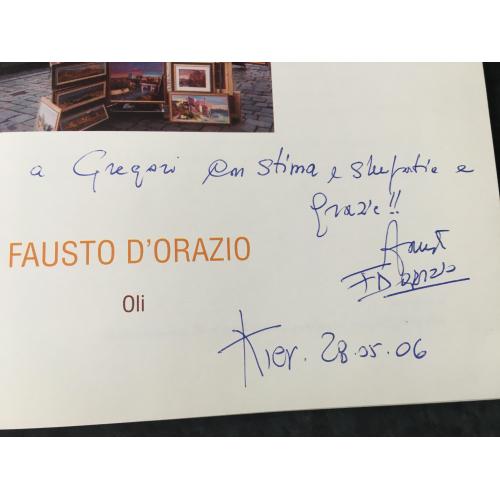 a Gregori con stima e simpatia e
grazie!!
Faust
FD'Orazio
FAUSTO D'ORAZIO
Oli
Kier. 28.05.06